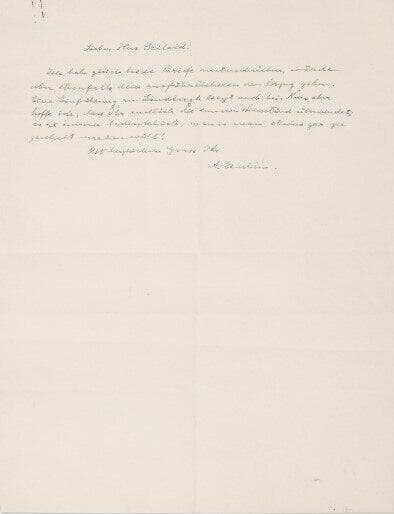 Lieber Herr Szilard!
Ich habe gleich beide Briefe unterschrieben, würde
aber ebenfalls dem ausführlicheren den Vorzug geben.
Eine Einführung zu Lindbergh liegt auch bei. Nun aber
hoffe ich, dass Ihr endlich den inneren Widerstand überwindet;
es ist immer bedenklich, wenn man etwas gar zu
gescheit machen will!
Mit herzlichem Gruss Ihr
A. Einstein.